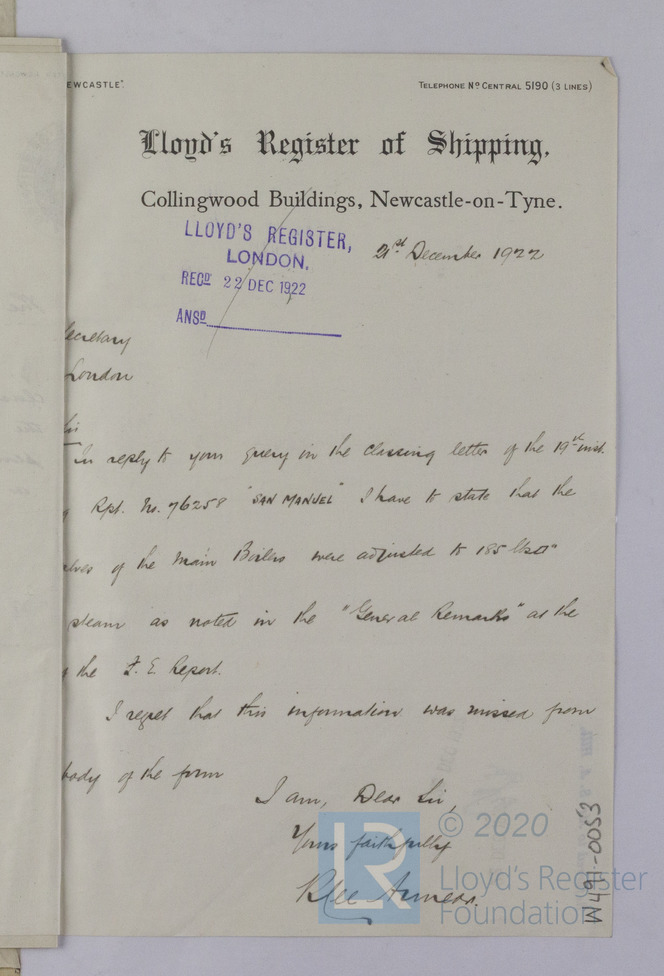 EWCASTLE".
TELEPHONE No CENTRAL 5190 (3 LINES)
Lloyd's Register of Shipping,
Collingwood Buildings, Newcastle-on-Tyne.
LLOYD'S REGISTER,
LONDON.
RECD 22 DEC 1922
ANSD
21st December 1922
ecretary
London
Sir
In reply to your query in the classing letter of the 19th inst.
Rpt. No. 76258 "SAN MANUEL" I have to state that the
lves of the Main Boilers were adjusted to 185 lbs□"
steam as noted in the "General Remarks" at the
the F. E. Report.
I regret that this information was missed from
body of the form
I am, Dear Sir,
Yours faithfully
© 2020
LR
Lloyd's Register
Foundation
W491-0053